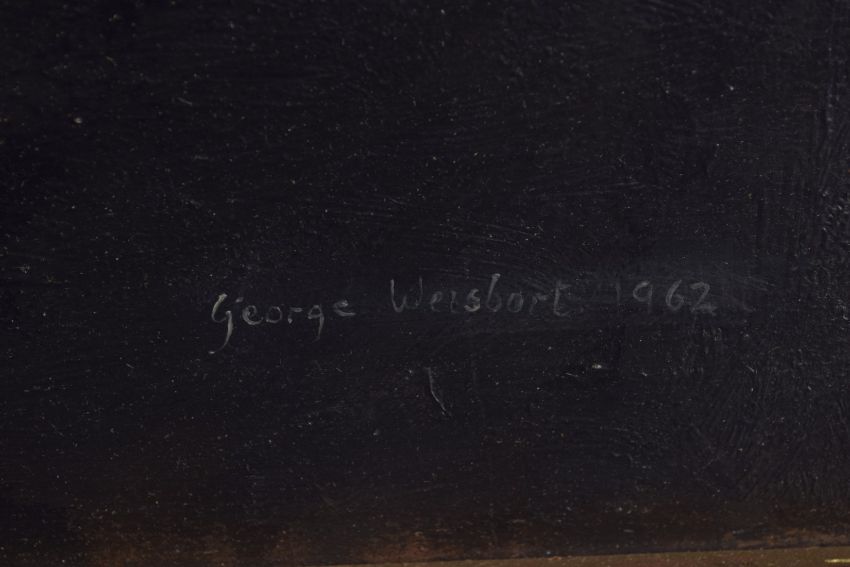 George Weisbort 1962